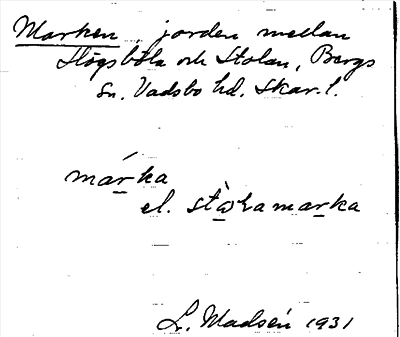 Marken, jorden mellan
Högsböla och Stolan, Bergs
sn. Vadsbo hd. Skar. l.
márka
el. 
L. Madsén 1931